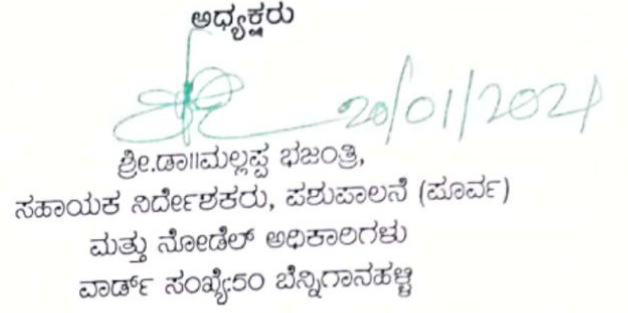 ಅಧ್ಯಕ್ಷರು
20/01/2021
ಶ್ರೀ.ಡಾ||ಮಲ್ಲಪ್ಪ ಭಜಂತ್ರಿ,
ಸಹಾಯಕ ನಿರ್ದೇಶಕರು, ಪಶುಪಾಲನೆ (ಪೂರ್ವ)
ಮತ್ತು ನೋಡೆಲ್ ಅಧಿಕಾರಿಗಳು
ವಾರ್ಡ್ ಸಂಖ್ಯೆ:50 ಬೆನ್ನಿಗಾನಹಳ್ಳಿ